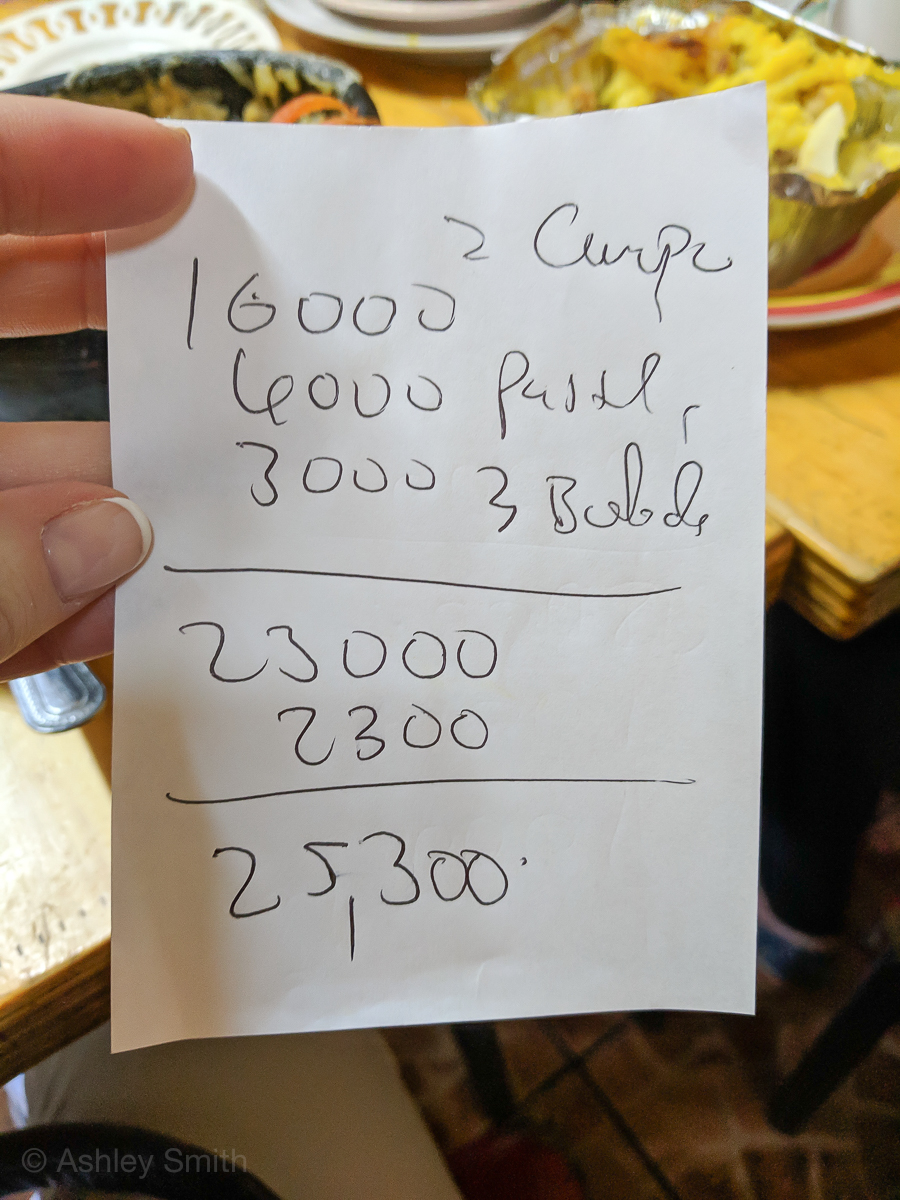 2
16000
4000 Pastel
3000 3
23000
2300
25,300
© Ashley Smith